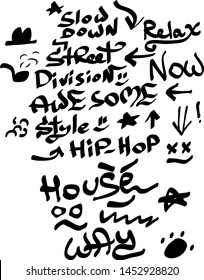 Slow
Down
Relax
Street
Now
Division
Awesome
Style
!
Hip-Hop
House
Way
shutterstock.com · 1452928820